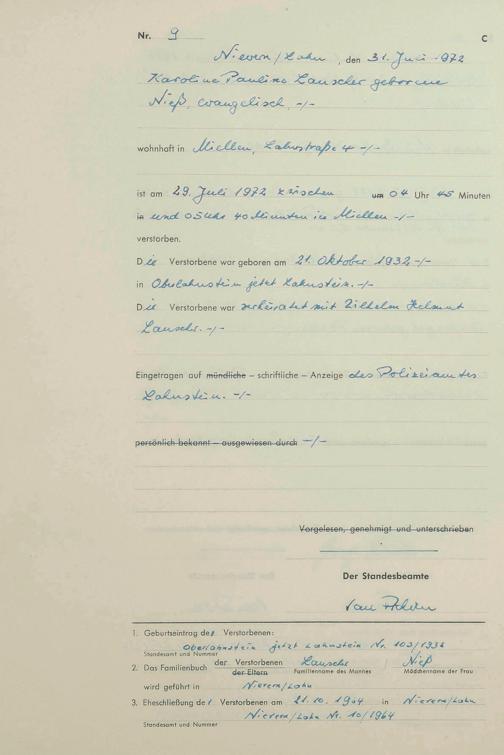 Nr. 9 C
Nievern/Lahn, den 31. Juli 1972
Karoline Pauline Lauscher geborene
Nieß, evangelisch, -/-
wohnhaft in Miellen, Lahnstraße 4 -/-
ist am 29. Juli 1972 zwischen um 04 Uhr 45 Minuten
in und 05 Uhr 40 Minuten in Miellen -/-
verstorben.
Die Verstorbene war geboren am 21. Oktober 1932 -/-
in Oberlahnstein jetzt Lahnstein. -/-
Die Verstorbene war verheiratet mit Wilhelm Helmut
Lauscher. -/-
Eingetragen auf mündliche – schriftliche – Anzeige des Polizeiamtes
Lahnstein. -/-
persönlich bekannt – ausgewiesen durch -/-
Vorgelesen, genehmigt und unterschrieben
Der Standesbeamte
1. Geburtseintrag der Verstorbenen:
Oberlahnstein jetzt Lahnstein Nr. 103/1932
Standesamt und Nummer
2. Das Familienbuch der Verstorbenen Lauscher Nieß
der Eltern Familienname des Mannes Mädchenname der Frau
wird geführt in Nievern/Lahn
3. Eheschließung der Verstorbenen am 21.10.1964 in Nievern/Lahn
Nievern/Lahn Nr. 10/1964
Standesamt und Nummer